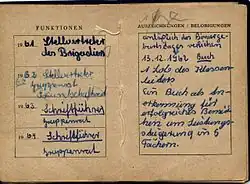 FUNKTIONEN
1961. Stellvertreter
des Brigadiers
1962 Stellvertreter
Gruppenrat
1963. Schriftführer
Gruppenrat
1964. Schriftführer
Gruppenrat
AUSZEICHNUNGEN / BELOBIGUNGEN
anläßlich des Pionierge-
burtstages verliehen
13.12.1962 Buch
1 Lob des Klassen-
leiters
Ein Buch als An-
erkennung für
erfolgreiches Bemühen
um Leistungs-
steigerung in 5
Fächern.